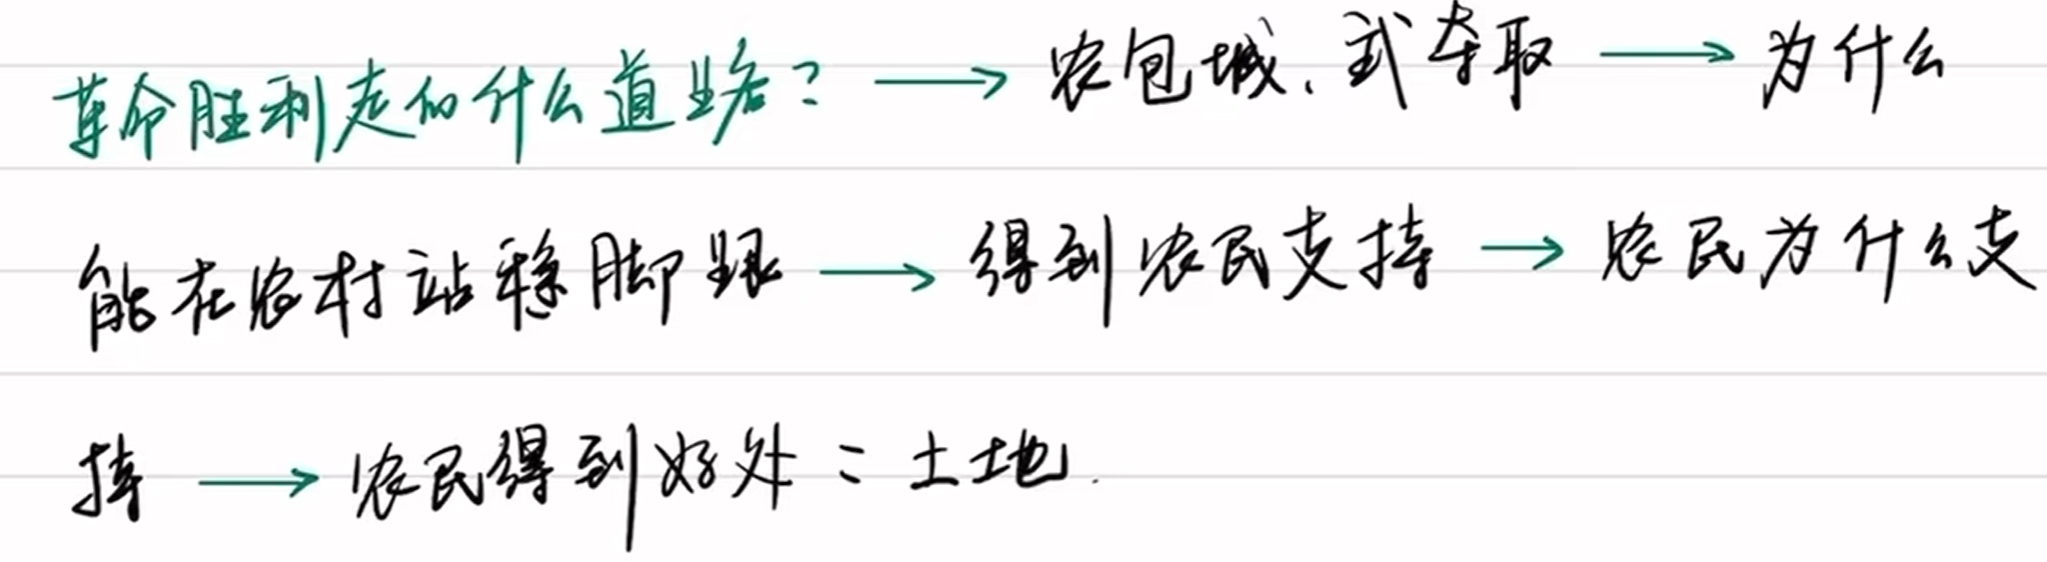 革命胜利走的什么道路？ → 农包城、武夺取 → 为什么
能在农村站稳脚跟 → 得到农民支持 → 农民为什么支
持 → 农民得到好处 = 土地.